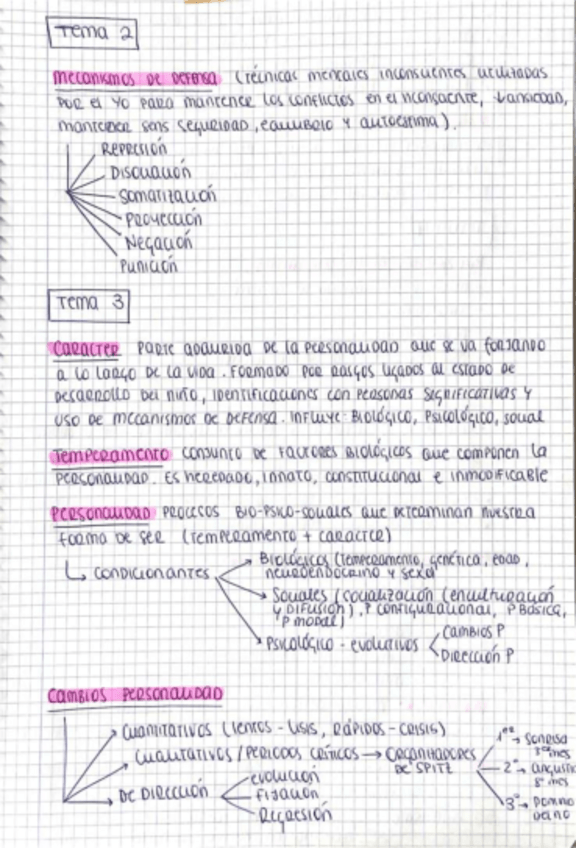 Tema 2
Mecanismos de defensa (técnicas mentales inconscientes utilizadas
por el yo para mantener los conflictos en el inconsciente, ↓ansiedad,
mantener sens seguridad, equilibrio y autoestima).
Represión
Disociación
Somatización
Proyección
Negación
Punición
Tema 3
Caracter parte adquirida de la personalidad que se va forjando
a lo largo de la vida. Formado por rasgos ligados al estado de
desarrollo del niño, identificaciones con personas significativas y
uso de mecanismos de defensa. Influye: Biológico, psicológico, social
Temperamento conjunto de factores biológicos que componen la
personalidad. Es heredado, innato, constitucional e inmodificable
Personalidad procesos bio-psico-sociales que determinan nuestra
forma de ser (temperamento + caracter)
↳ condicionantes
Biológicos (temperamento, genética, edad,
neuroendocrino y sexo)
Sociales (socialización (enculturación
y difusión), P configuracional, P básica,
P modal)
Psicológico - evolutivos
Cambios P
Dirección P
Cambios personalidad
Cuantitativos (lentos - lisis, rápidos - crisis)
Cualitativos / periodos críticos → organizadores
de Spitz
1er → sonrisa
3er mes
2º → angustia
8º mes
3º → dominio
del no
De dirección
evolución
fijación
Regresión